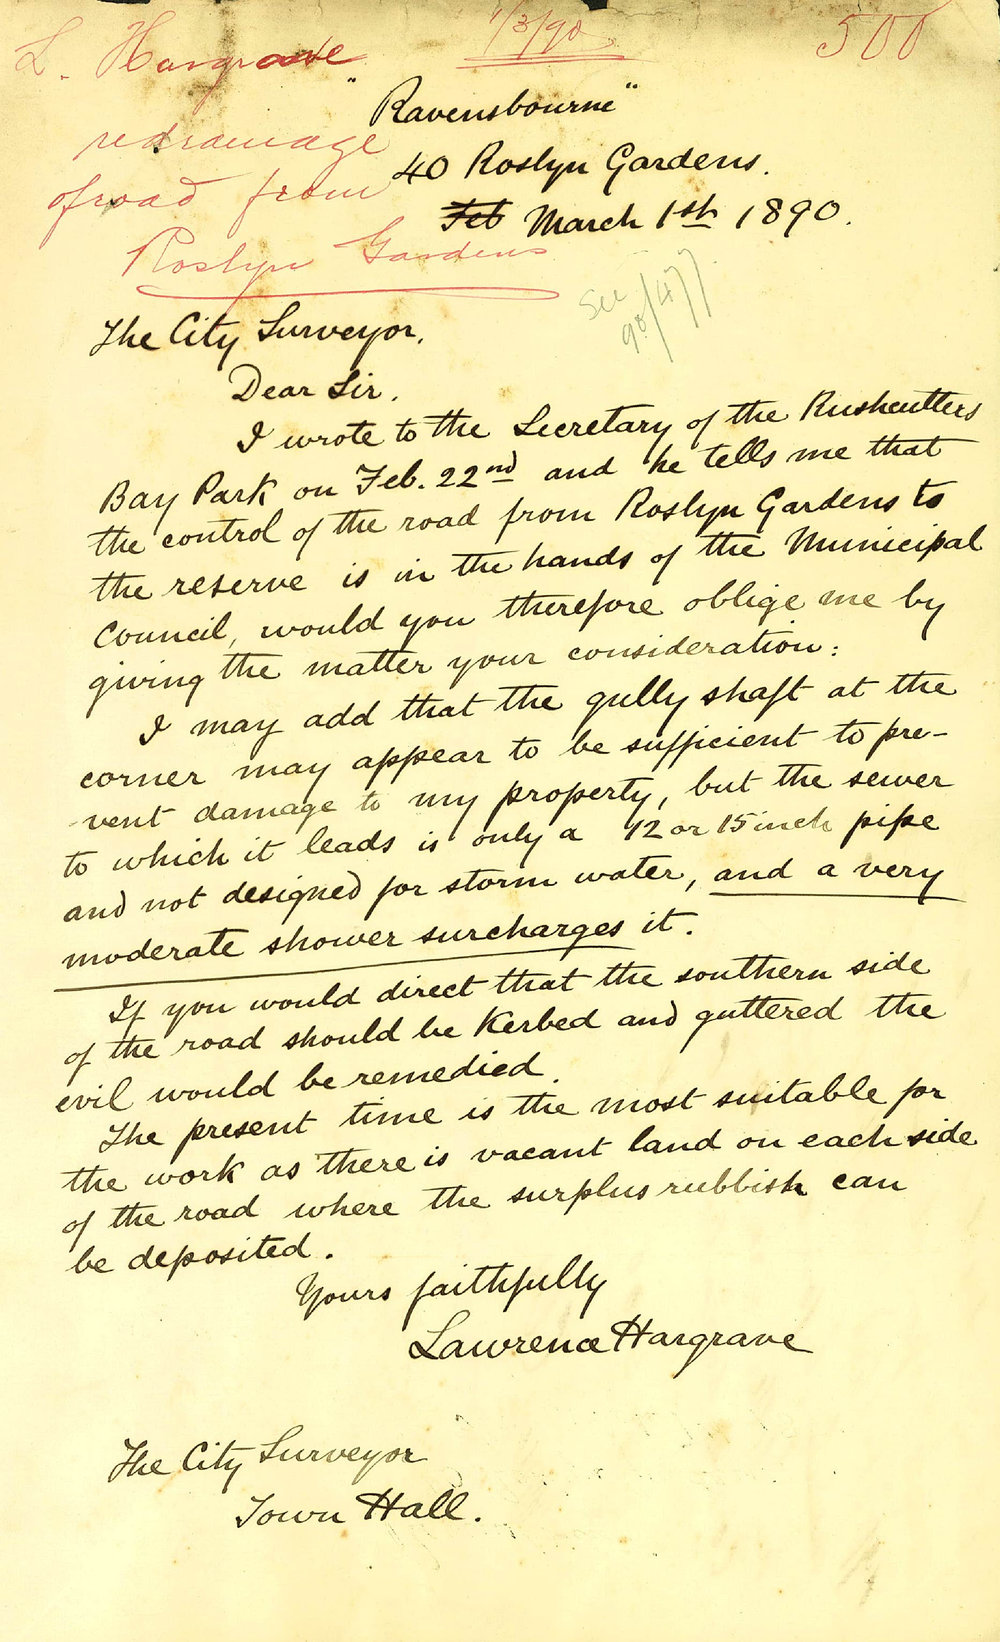 L. Hargrave
1/3/90
500
re drainage
of road from
Roslyn Gardens
"Ravensbourne"
40 Roslyn Gardens.
Feb March 1st 1890.
See
90/477
The City Surveyor.
Dear Sir.
I wrote to the Secretary of the Rushcutters
Bay Park on Feb. 22nd and he tells me that
the control of the road from Roslyn Gardens to
the reserve is in the hands of the Municipal
Council, would you therefore oblige me by
giving the matter your consideration:
I may add that the gully shaft at the
corner may appear to be sufficient to pre-
vent damage to my property, but the sewer
to which it leads is only a 12 or 15 inch pipe
and not designed for storm water, and a very
moderate shower surcharges it.
If you would direct that the southern side
of the road should be Kerbed and guttered the
evil would be remedied.
The present time is the most suitable for
the work as there is vacant land on each side
of the road where the surplus rubbish can
be deposited.
Yours faithfully
Lawrence Hargrave
The City Surveyor
Town Hall.